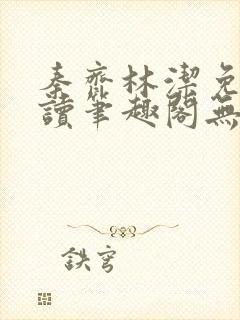 秦齊林潔免
讀筆趣閣無
鉄穹